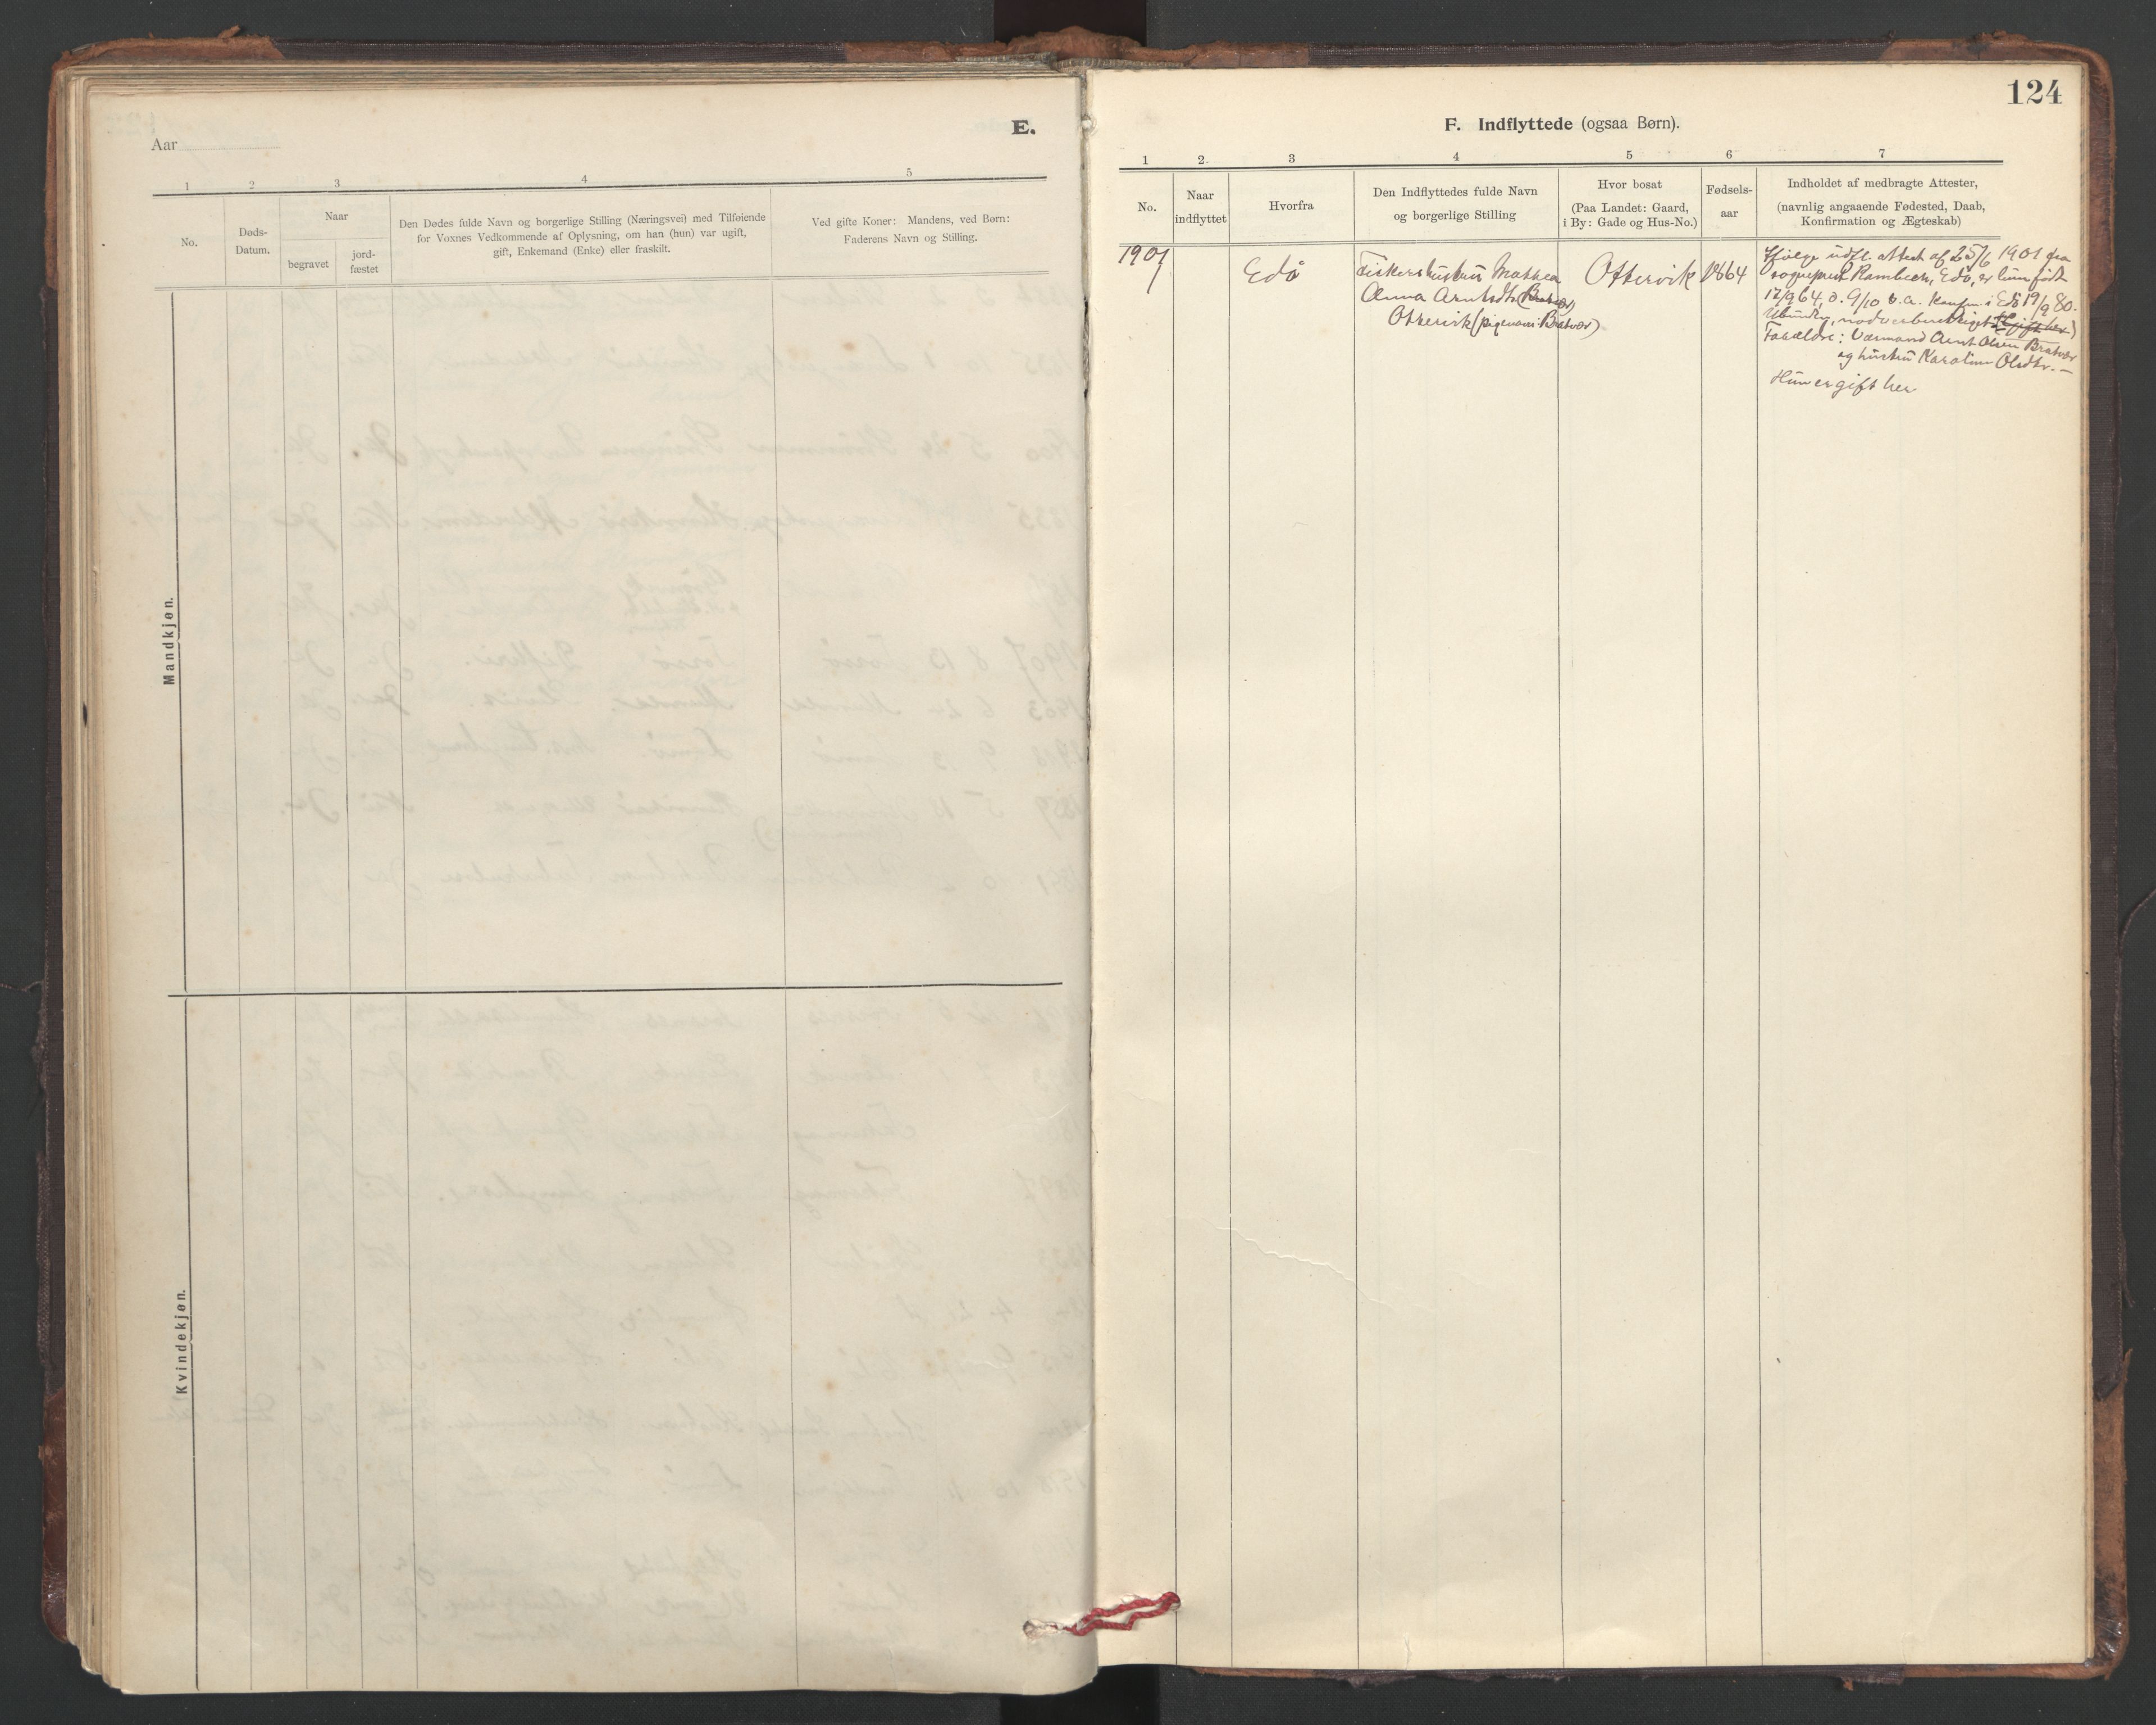 Aar
E.
1 2 3 4 5
No.
Døds-
Datum.
Naar
begravet
jord-
fæstet
Den Dødes fulde Navn og borgerlige Stilling (Næringsvei) med Tilføiende
for Voxnes Vedkommende af Oplysning, om han (hun) var ugift,
gift, Enkemand (Enke) eller fraskilt.
Ved gifte Koner: Mandens, ved Børn:
Faderens Navn og Stilling.
Mandkjøn.
Kvindekjøn.
124
F. Indflyttede (ogsaa Børn).
1 2 3 4 5 6 7
No.
Naar
indflyttet
Hvorfra
Den Indflyttedes fulde Navn
og borgerlige Stilling
Hvor bosat
(Paa Landet: Gaard,
i By: Gade og Hus-No.)
Fødsels-
aar
Indholdet af medbragte Attester,
(navnlig angaaende Fødested, Daab,
Konfirmation og Ægteskab)
1901
Edö
Fiskershustru Mathea
Anna Arntsdtr (Bratvær)
Ottervik (pigenavn Bratvær)
Ottervik
1864
Ifölge udfl. attest af 25/6 1901 fra
sogneprest Rambech, Edö, er hun födt
12/9 64, d. 9/10 s.a. konfm. i Edö 19/9 80.
Ubunden,
Forældre: Værmand Arnt Olsen Bratvær
og hustru Karoline Olsdtr. —
Hun er gift her